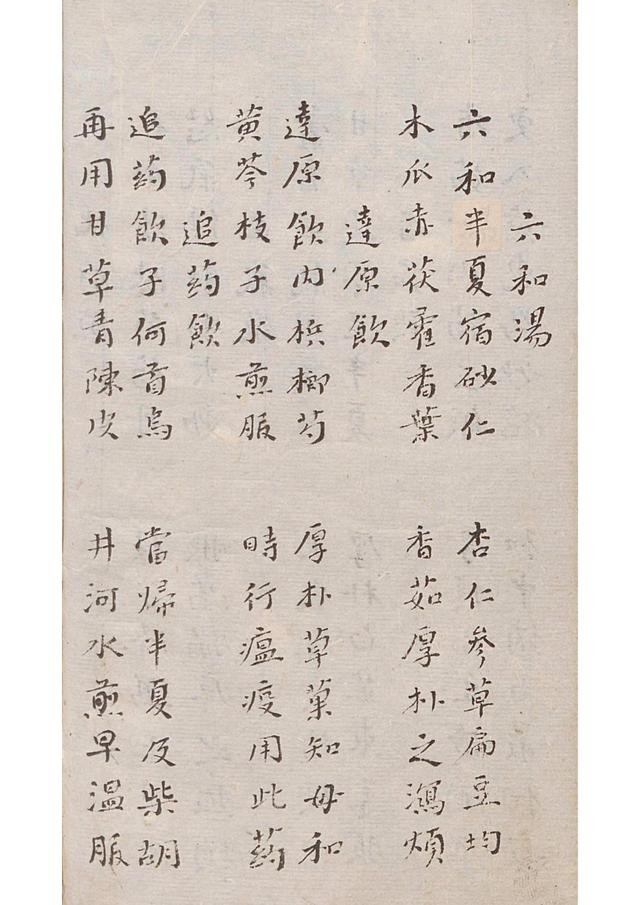 六和湯
六和半夏宿砂仁　杏仁參草扁豆均
木瓜赤茯霍香葉　香茹厚朴之瀉煩
達原飲
達原飲內梹榔芍　厚朴草菓知母和
黃芩枝子水煎服　時行瘟疫用此药
追药飲
追药飲子何首烏　當歸半夏及柴胡
再用甘草青陳皮　井河水煎早溫服